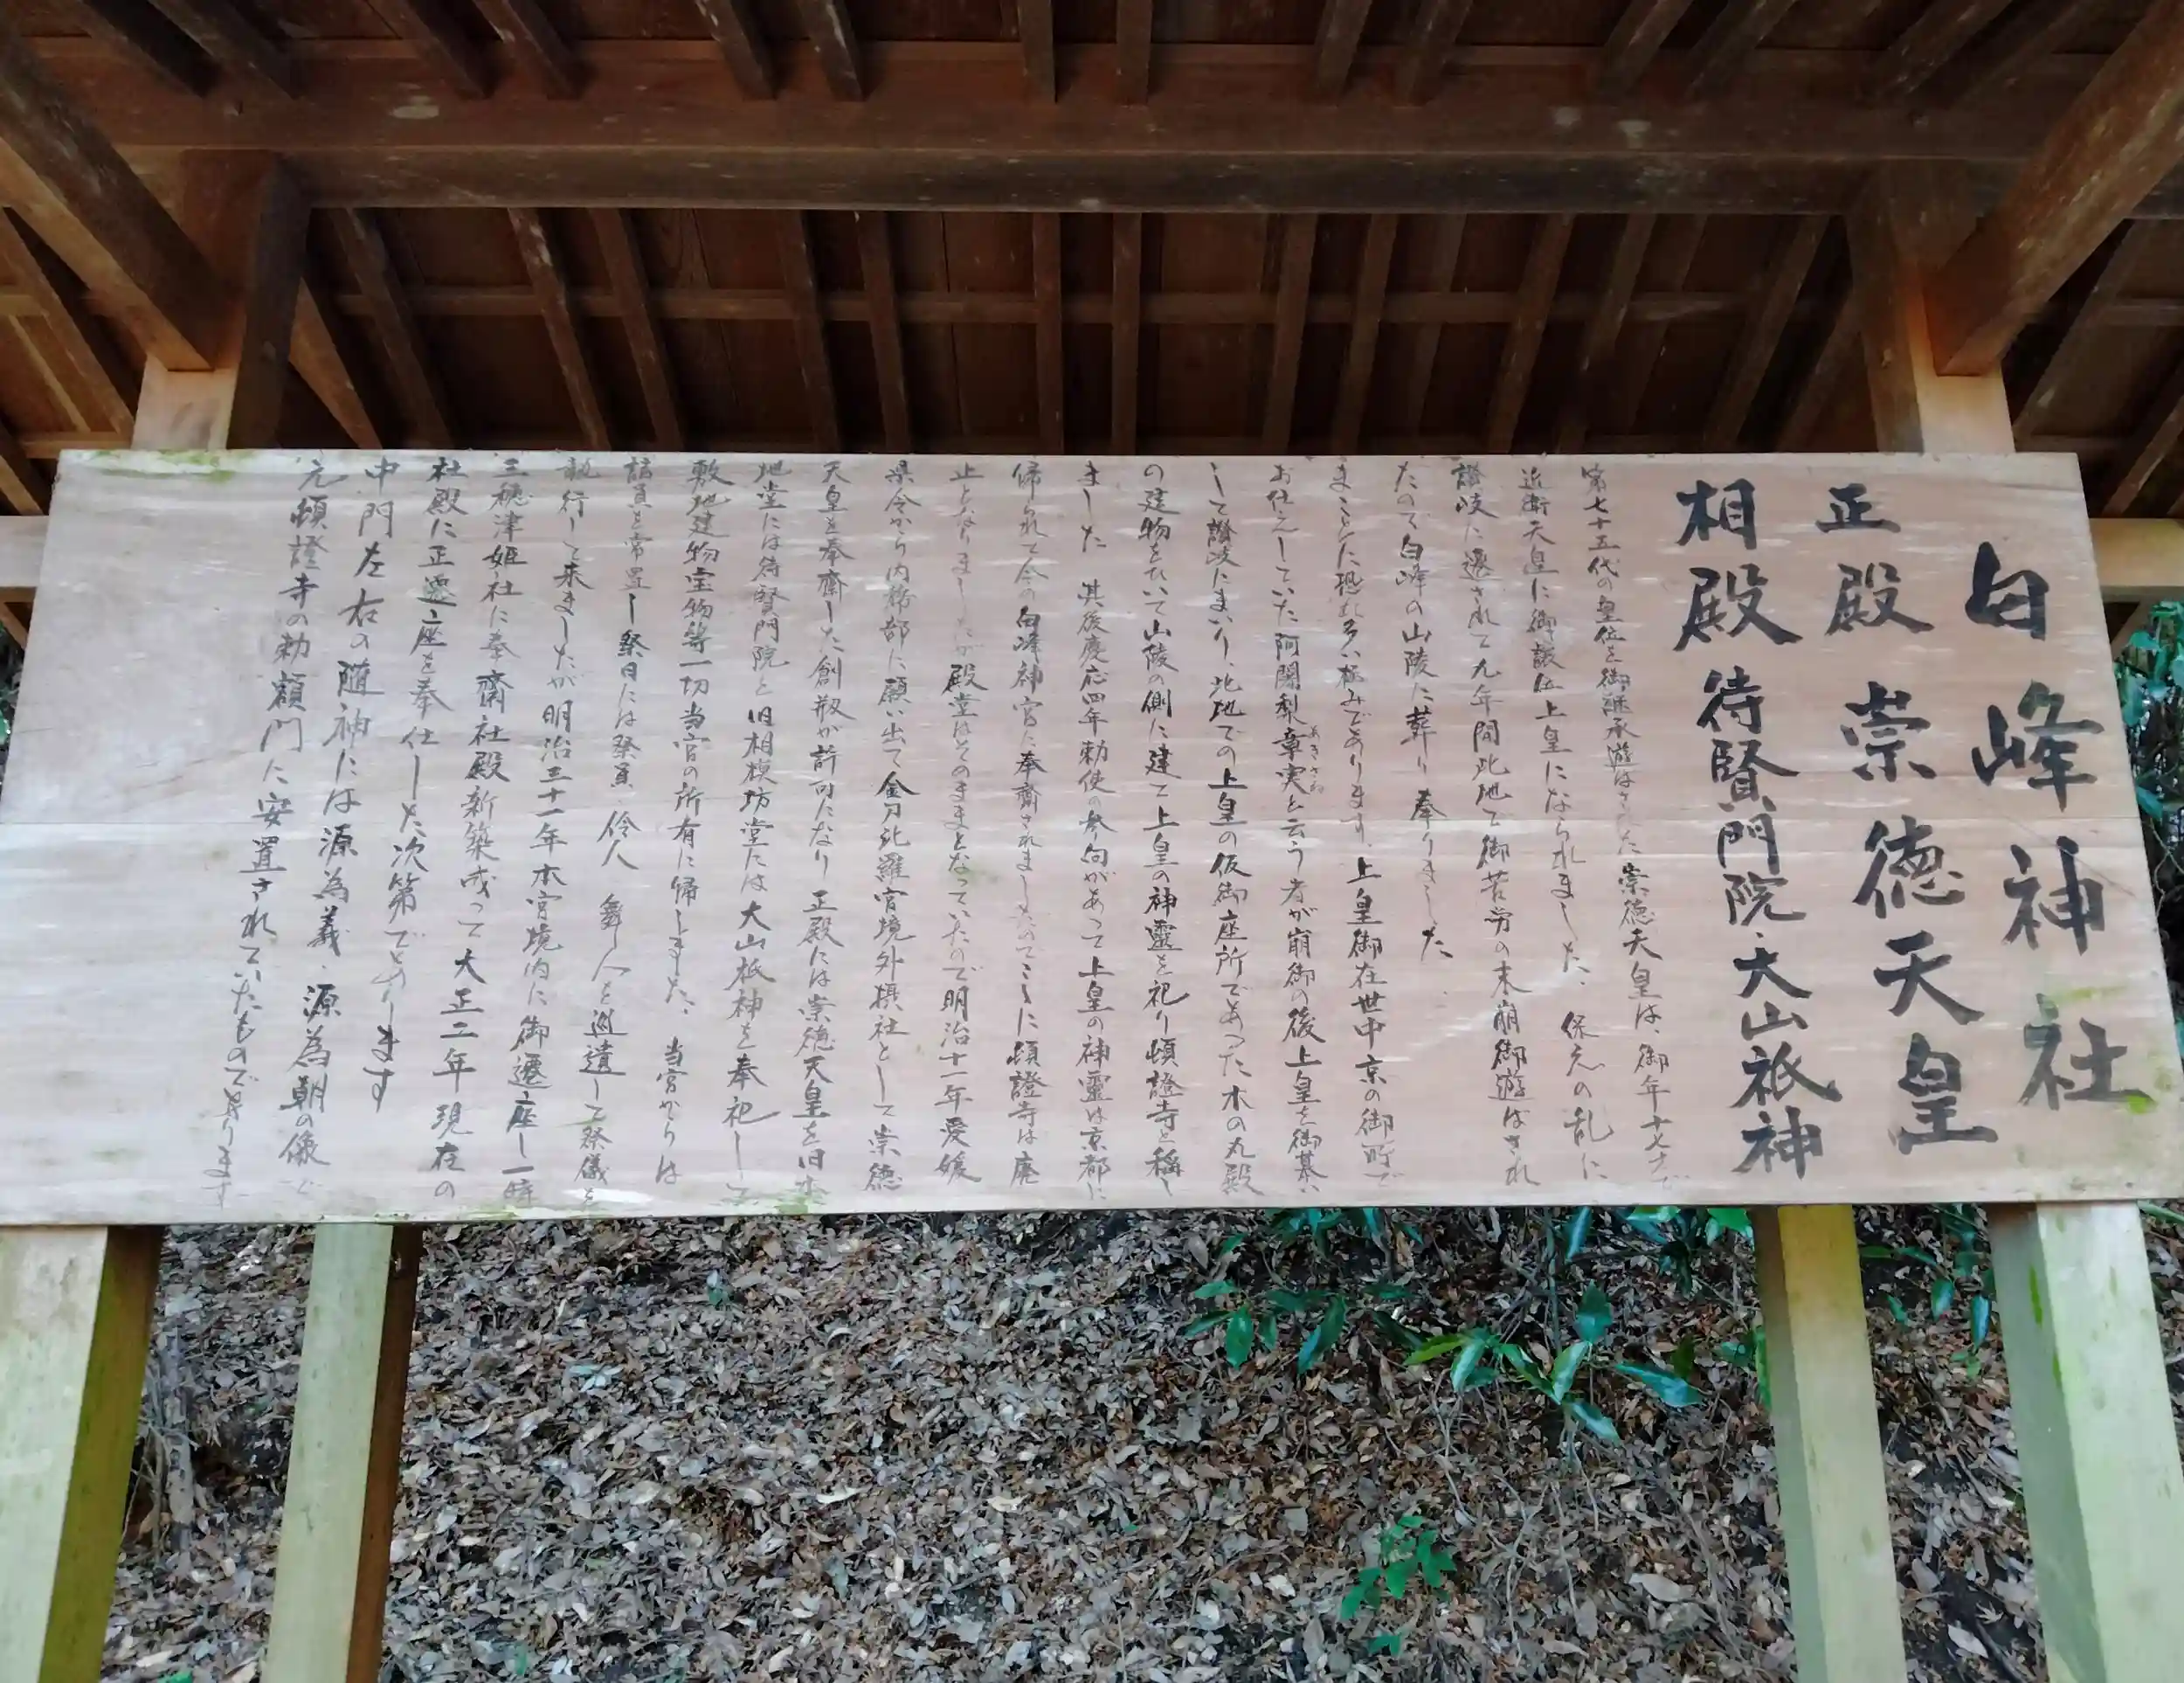 白峰神社
正殿 崇徳天皇
相殿 待賢門院・大山祇神
第七十五代の皇位を御継承遊はされた崇徳天皇は、御年十七才で
近衛天皇に御譲位上皇になられました、保元の乱に
讃岐に遷されて九年間此地で御苦労の末崩御遊ばされ
たので白峰の山陵に葬り奉りました
まことに恐れ多い極みであります、上皇御在世中京の御所で
お仕えしていた阿闍梨章実と云う者が崩御の後上皇を御慕い
して讃岐にまいり、此地での上皇の仮御座所であった木の丸殿
の建物をひいて山陵の側に建て上皇の神靈を祀り頓證寺と稱し
ました 其後慶応四年勅使の参向があって上皇の神靈は京都に
帰られて今の白峰神宮に奉齋されましたのでここに頓證寺は廃
止となりましたが殿堂はそのままとなっていたので明治十一年愛媛
県令から内務部に願い出て金刀比羅宮境外摂社として崇徳
天皇を奉齋した創祀が許可になり 正殿には崇徳天皇を旧本
地堂には待賢門院と旧相模坊堂には大山祇神を奉祀して
敷地建物宝物等一切当宮の所有に帰しました、当宮からは
詰員を常置し祭日には祭員、伶人、舞人を巡遣して祭儀を
執行して来ましたが明治三十一年本宮境内に御遷座し一時
三穂津姫社に奉齋社殿新築成って大正二年現在の
社殿に正遷座を奉仕した次第であります
中門左右の随神には源為義・源為朝の像で
元頓證寺の勅額門に安置されていたものであります